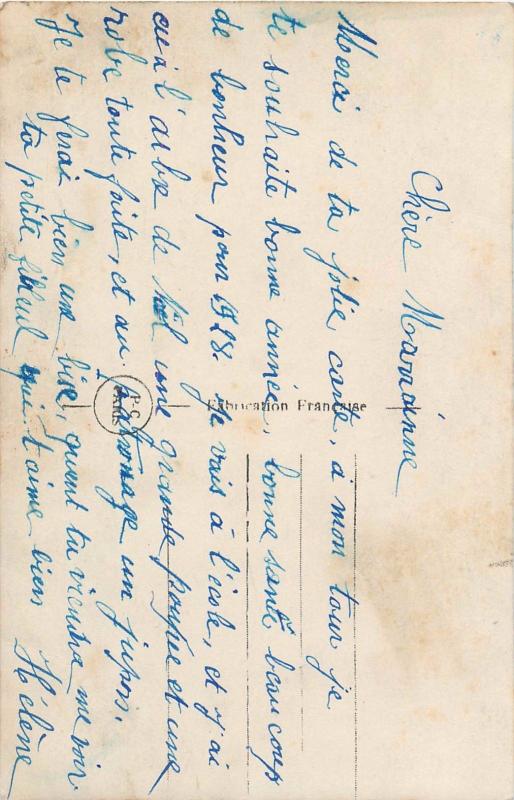 Chère Marainne
Merci de ta jolie carte, à mon tour je
te souhaite bonne année, bonne santé beaucoup
de bonheur pour 1928. Je vais à l'école, et j'ai
eu à l'arbe de Noël une grande poupée et une
robe toute faite, et au patronage un jupon.
Je te ferai bien une bise, quant tu viendra me voir
ta petite filleul qui t'aime bien Hélène
Fabrication Française
P.C.
PARIS